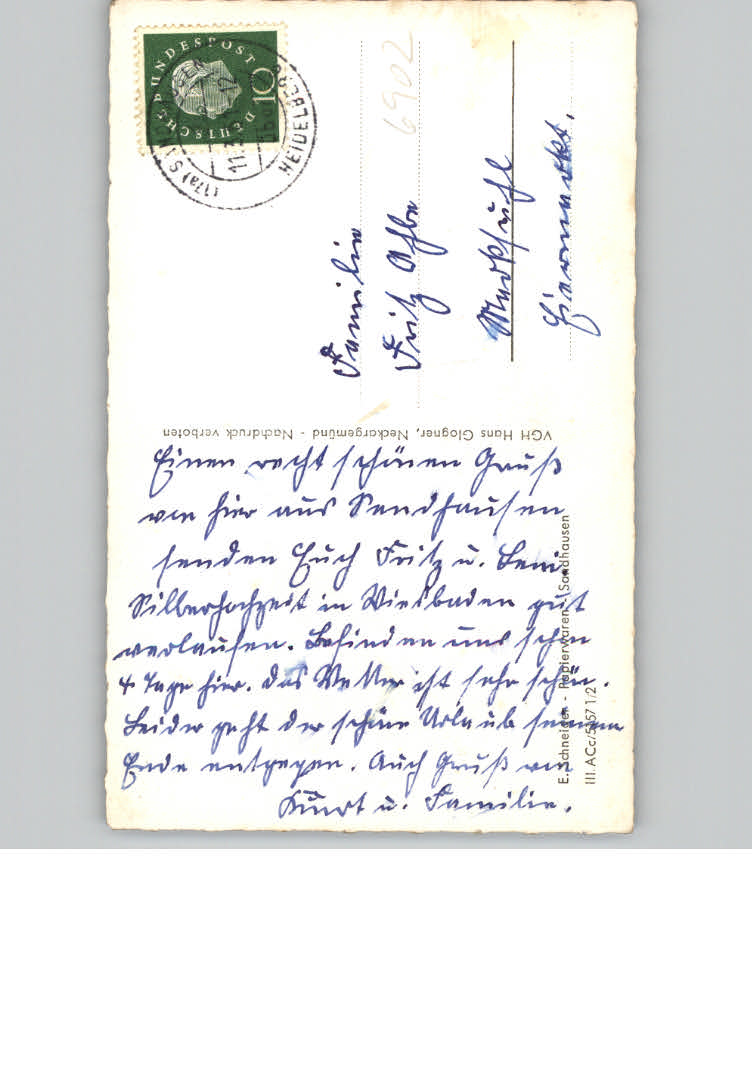 DEUTSCHE BUNDESPOST
10
(17a) SANDHAUSEN
HEIDELBERG
6902
Familie
Fritz
Marksuhl
Eisenacherstr.
VGH Hans Glogner, Neckargemünd - Nachdruck verboten
Einen recht schönen Gruß
von hier aus Sandhausen
senden Euch Fritz u. Leni.
Silberhochzeit in Wiesbaden gut
verlaufen. Befinden uns schon
4 Tage hier. Das Wetter ist sehr schön.
Leider geht der schöne Urlaub seinem
Ende entgegen. Auch Gruß von
Kurt u. Familie.
E. Schneider - Papierwaren - Sandhausen
III. ACc/5657 1/2